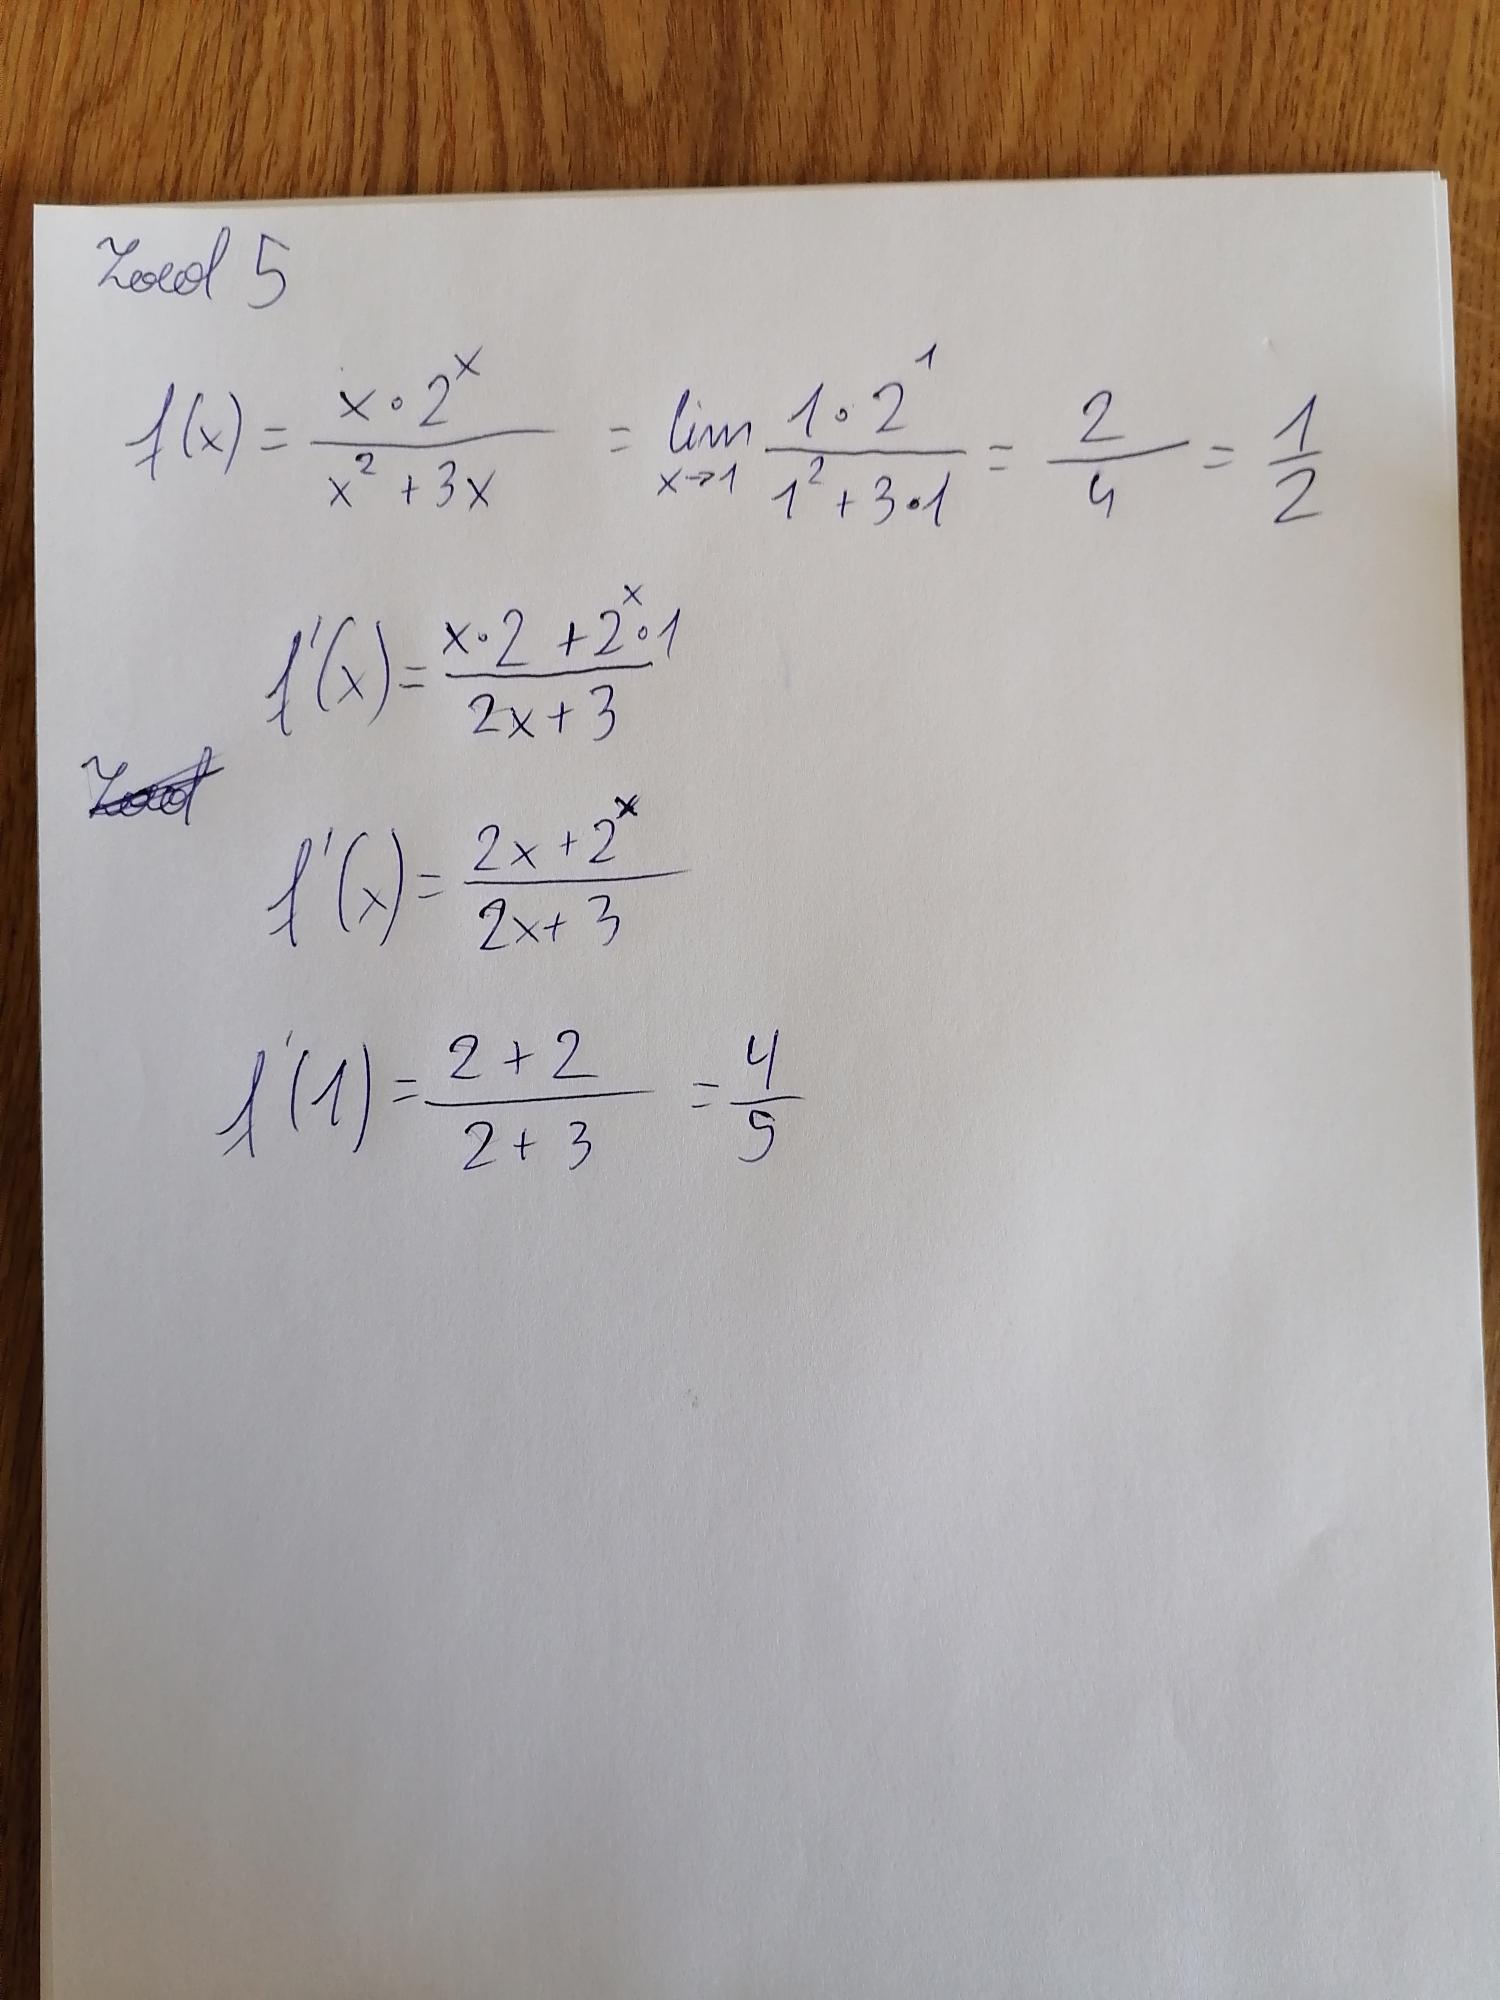 Zad 5
f(x) = \frac{x \cdot 2^x}{x^2 + 3x} = \lim_{x \to 1} \frac{1 \cdot 2^1}{1^2 + 3 \cdot 1} = \frac{2}{4} = \frac{1}{2}
f'(x) = \frac{x \cdot 2 + 2^x \cdot 1}{2x + 3}
Zad
f'(x) = \frac{2x + 2^x}{2x + 3}
f'(1) = \frac{2 + 2}{2 + 3} = \frac{4}{5}